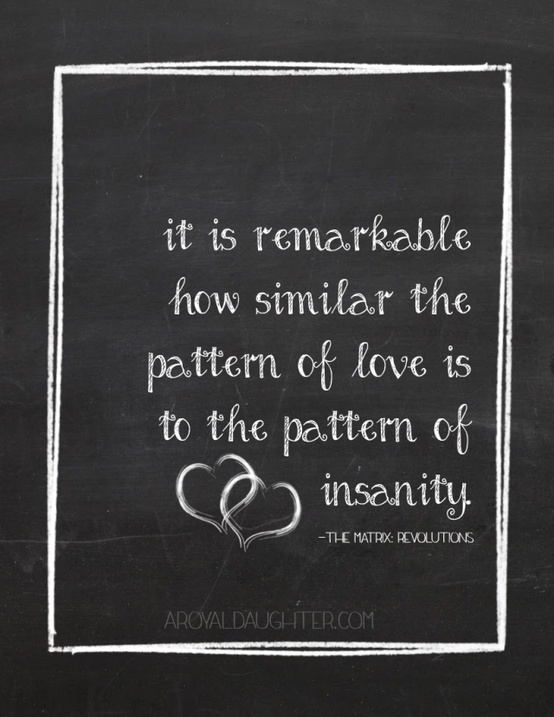 it is remarkable
how similar the
pattern of love is
to the pattern of
insanity.
-THE MATRIX: REVOLUTIONS
AROYALDAUGHTER.COM